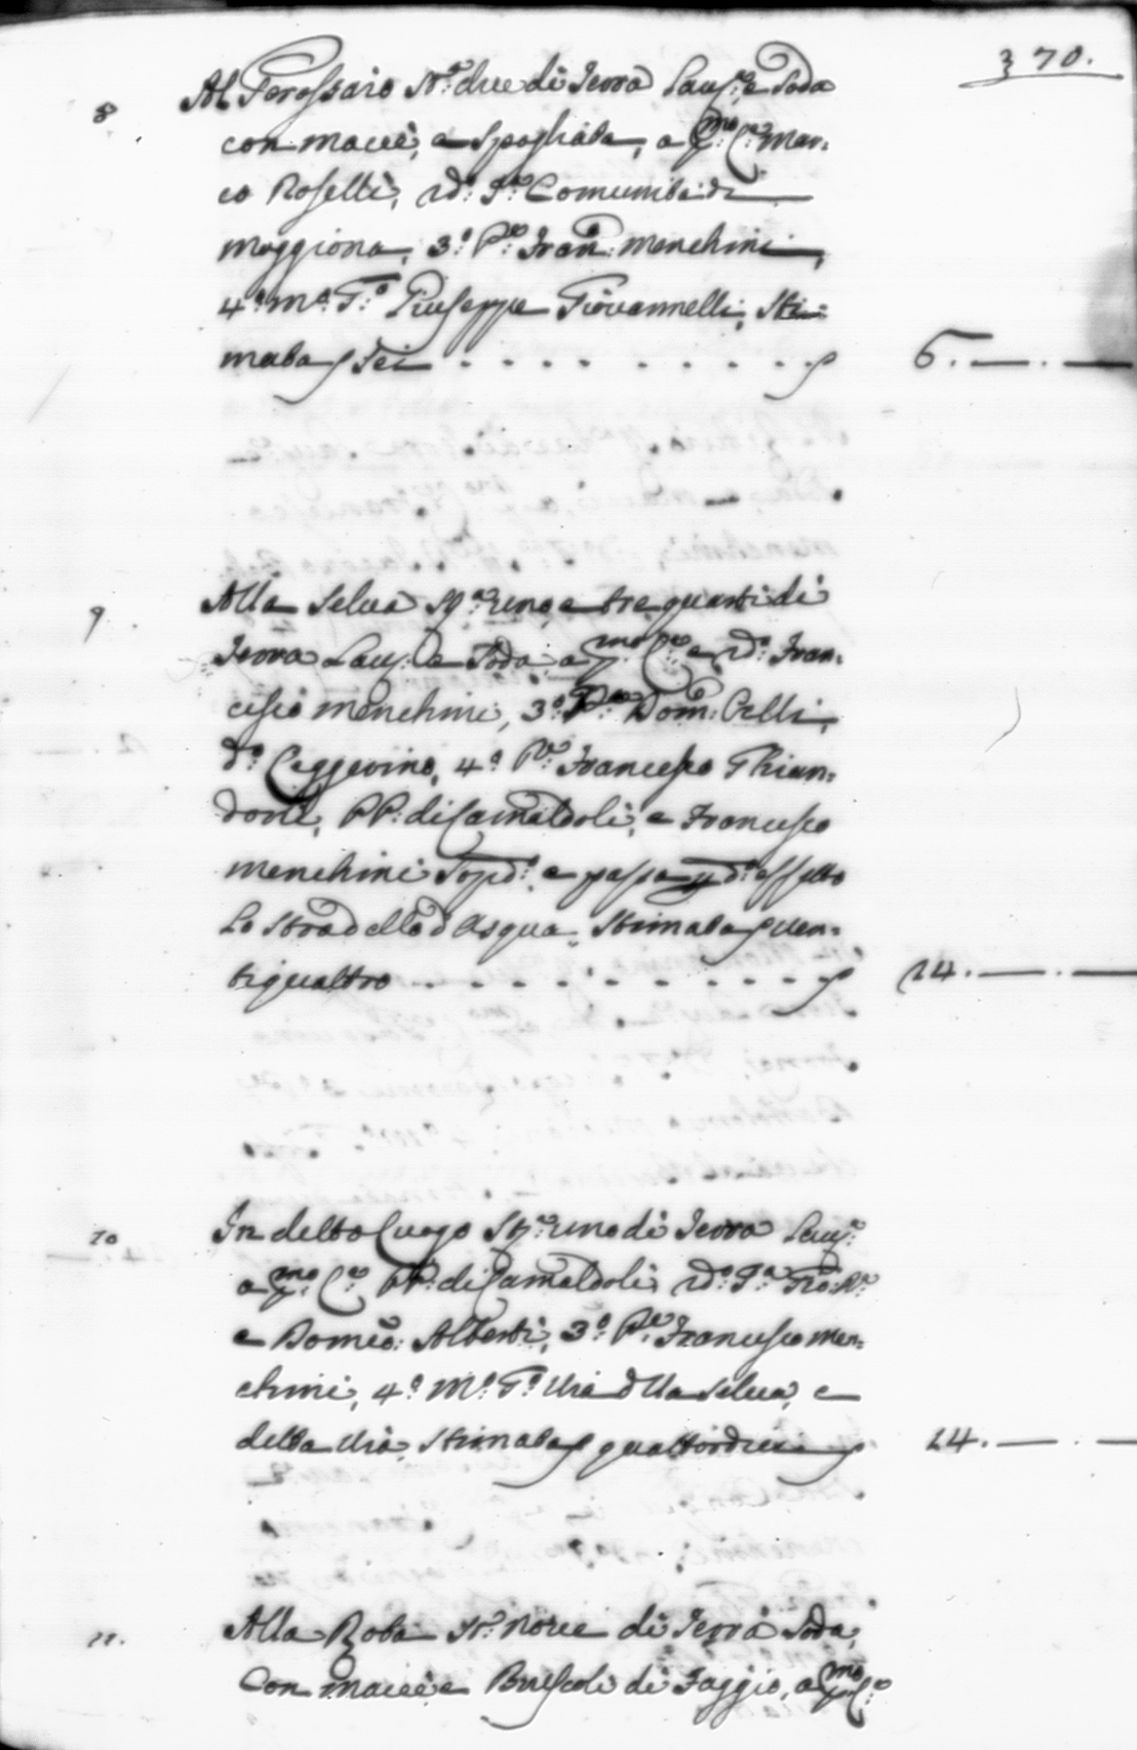 370.
8 Al Perossaio St.ra due di Terra Lau.a e Soda
con macie, e Spogliata, a p.mo C.o Mar:
co Roselli, 2d.o S.a Comunita di
Moggiona, 3.o P.o Fran: Menchini,
4.o m.o T.o Giuseppe Giovannelli, Sti=
mata S Sei . . . . . . . . . . S 6. — . —
9 Alla Selva St.ra uno, e tre quarti di
Terra Lau: e Soda, a p.mo C.o e 2d.o Fran:
cesco Menchini, 3.o P.o Dom: Celli,
d.o Ceggerino, 4.o P.o Francesco Ghian=
doni, PP. di Camaldoli, e Francesco
Menchini Sopd.o, e passa p d.o effetto
Lo Stradello d'Asqua, Stimata S ven=
tiquattro . . . . . . . . . . S 24. — . —
10 In detto Luogo St.ra uno di Terra Lau.a
a p.mo C.o PP. di Camaldoli, 2d.o S.a Gio: B.a
e Domco: Alberti, 3.o P.o Francesco Men:
chini, 4.o M.o T.o Via d'lla Selva, e
detta Via, Stimata S quattordici S 14. — . —
11. Alla Roba St.ra nove di Terra Soda,
Con macie e Bruscoli di Faggio, a p.mo C.o